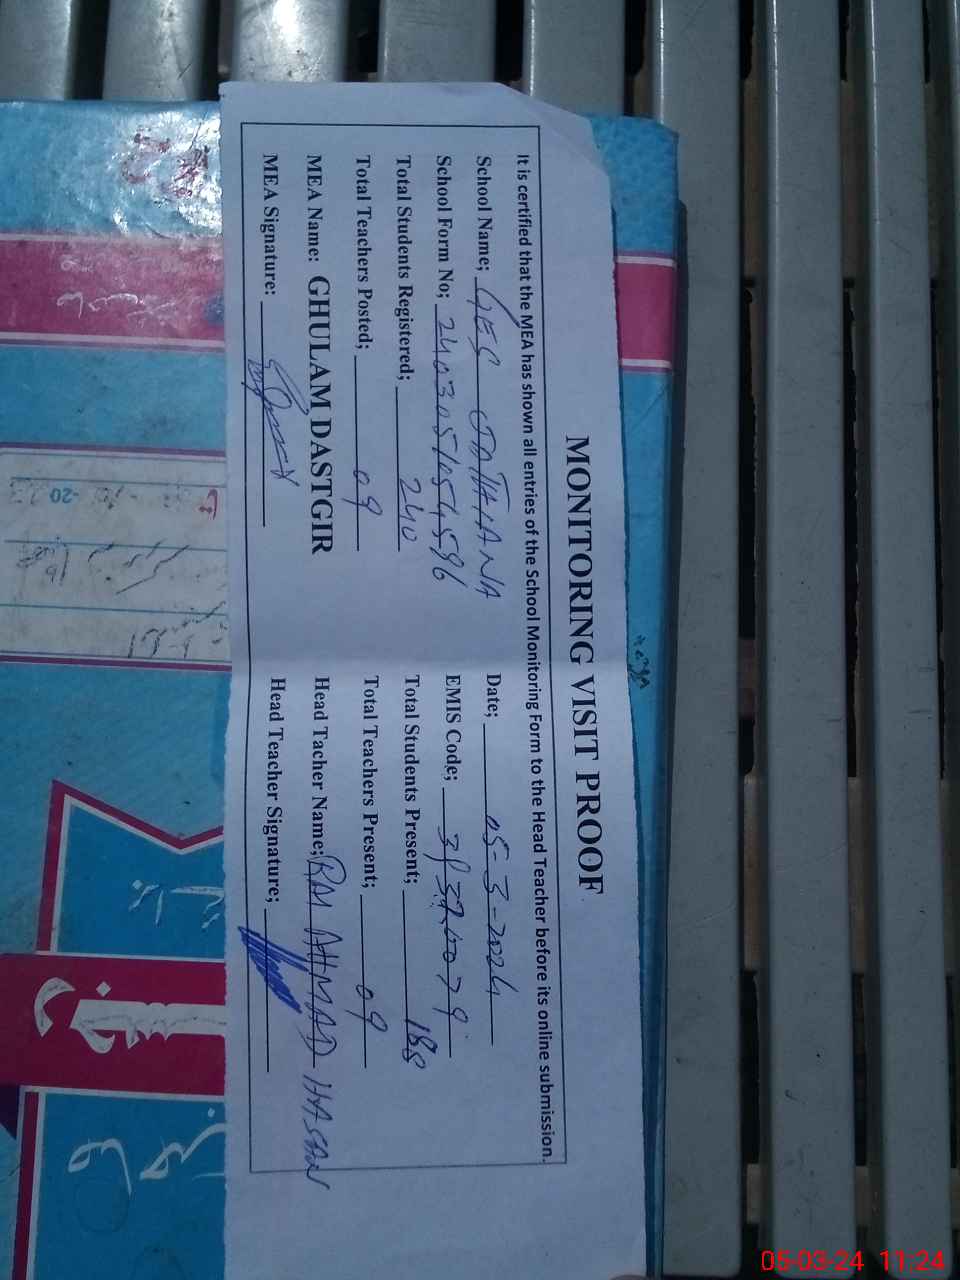 MONITORING VISIT PROOF
It is certified that the MEA has shown all entries of the School Monitoring Form to the Head Teacher before its online submission.
School Name; GES JATHANA Date; 05-3-2024
School Form No; 240305/054596 EMIS Code;
Total Students Registered; 240 Total Students Present; 188
Total Teachers Posted; 09 Total Teachers Present; 09
MEA Name: GHULAM DASTGIR Head Tacher Name; RAI AHMAD HASAN
MEA Signature: Head Teacher Signature;
-20
05-03-24 11:24